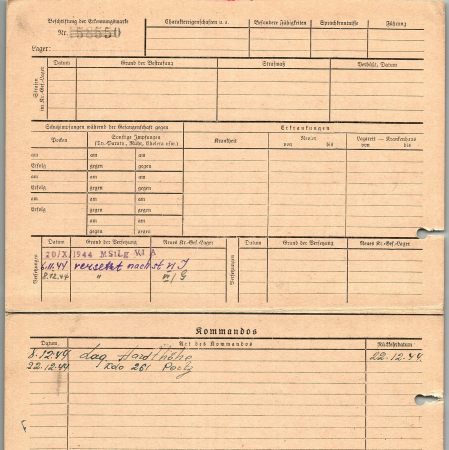 Beschriftung der Erkennungsmarke
Charaktereigenschaften u. a.
Besondere Fähigkeiten
Sprachkenntnisse
Führung
Nr. 158550
Lager:
Strafen im Kr.-Gef.-Lager
Datum
Grund der Bestrafung
Strafmaß
Verbüßt, Datum
Schutzimpfungen während der Gefangenschaft gegen
Erkrankungen
Pocken
Sonstige Impfungen
(Ty.-Paraty., Ruhr, Cholera usw.)
Krankheit
Revier
von bis
Lazarett – Krankenhaus
von bis
am am am
Erfolg gegen gegen
am am am
Erfolg gegen gegen
am am am
Erfolg gegen gegen
am am
gegen gegen
Versetzungen
Datum
Grund der Versetzung
Neues Kr.-Gef.-Lager
Versetzungen
Datum
Grund der Versetzung
Neues Kr.-Gef.-Lager
20/X.1944 MStLg VI A
6.11.44 versetzt nach St VI J
8.12.44 " VI/G
Kommandos
Datum
Art des Kommandos
Rückkehrdatum
8.12.44 Lag Hardthöhe 22.12.44
22.12.44 Kdo 261